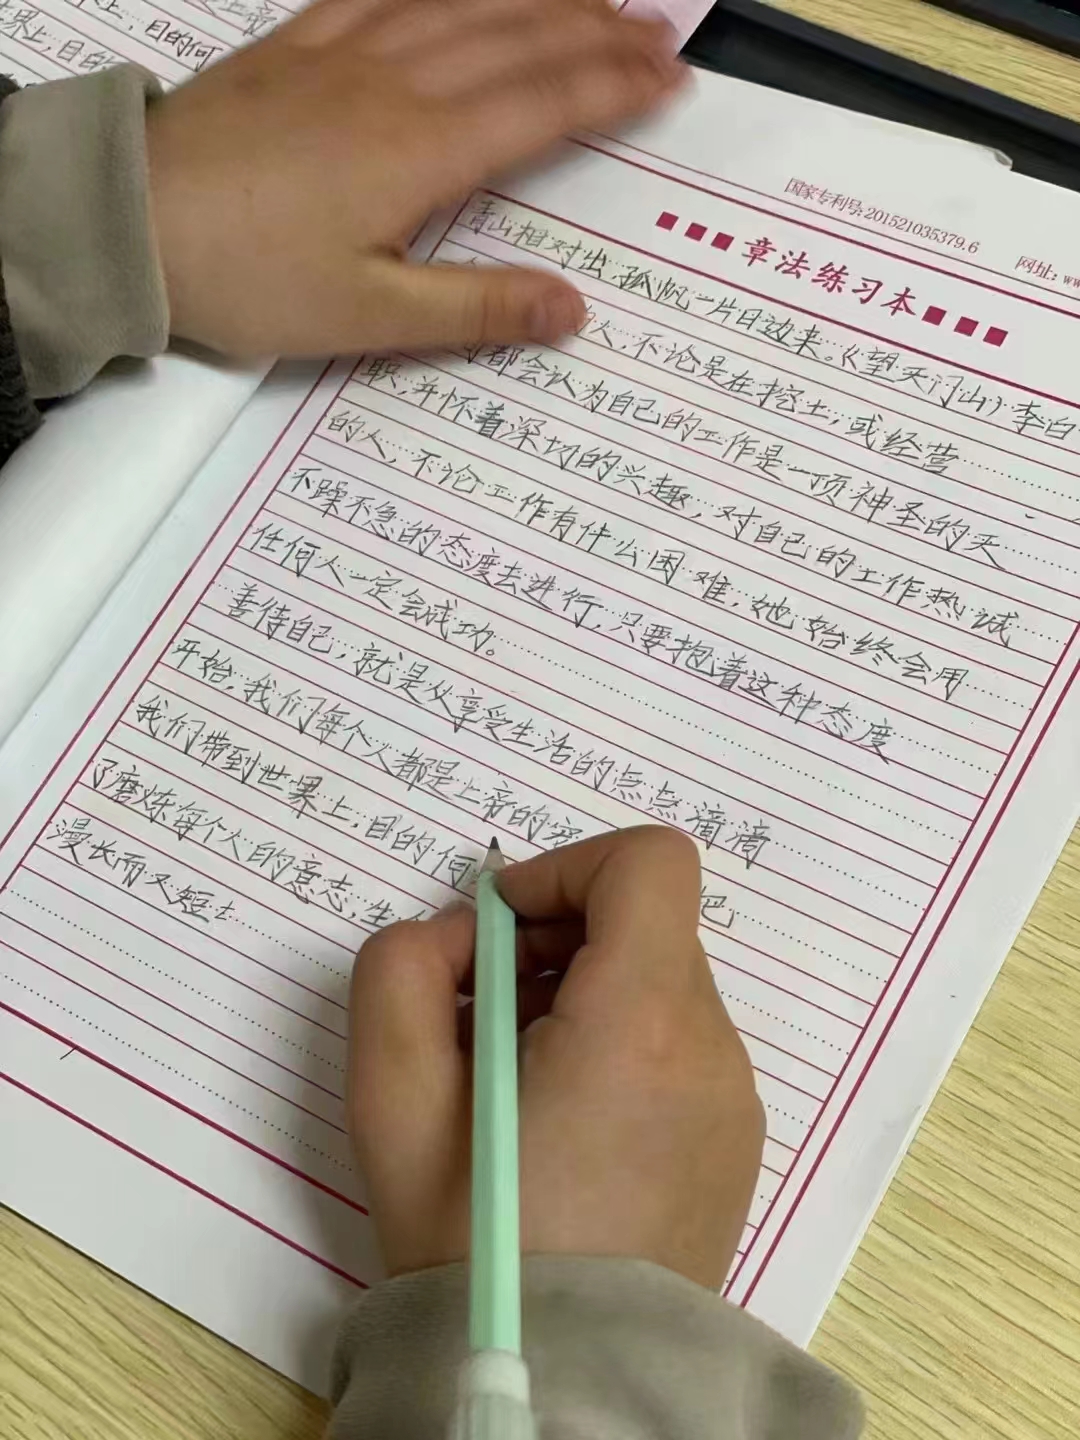 上,目的何
界上,目的
国家专利号:201521035379.6
网址:ww
章法练习本
青山相对出,孤帆一片日边来。《望天门山》李白
人,不论是在挖土,或经营
都会认为自己的工作是一项神圣的天
职,并怀着深切的兴趣,对自己的工作热诚
的人,不论工作有什么困难,她始终会用
不躁不急的态度去进行,只要抱着这种态度
任何人一定会成功。
善待自己,就是从享受生活的点点滴滴
开始,我们每个人都是上帝的宠 把
我们带到世界上,目的何
了磨炼每个人的意志,生
漫长而又短